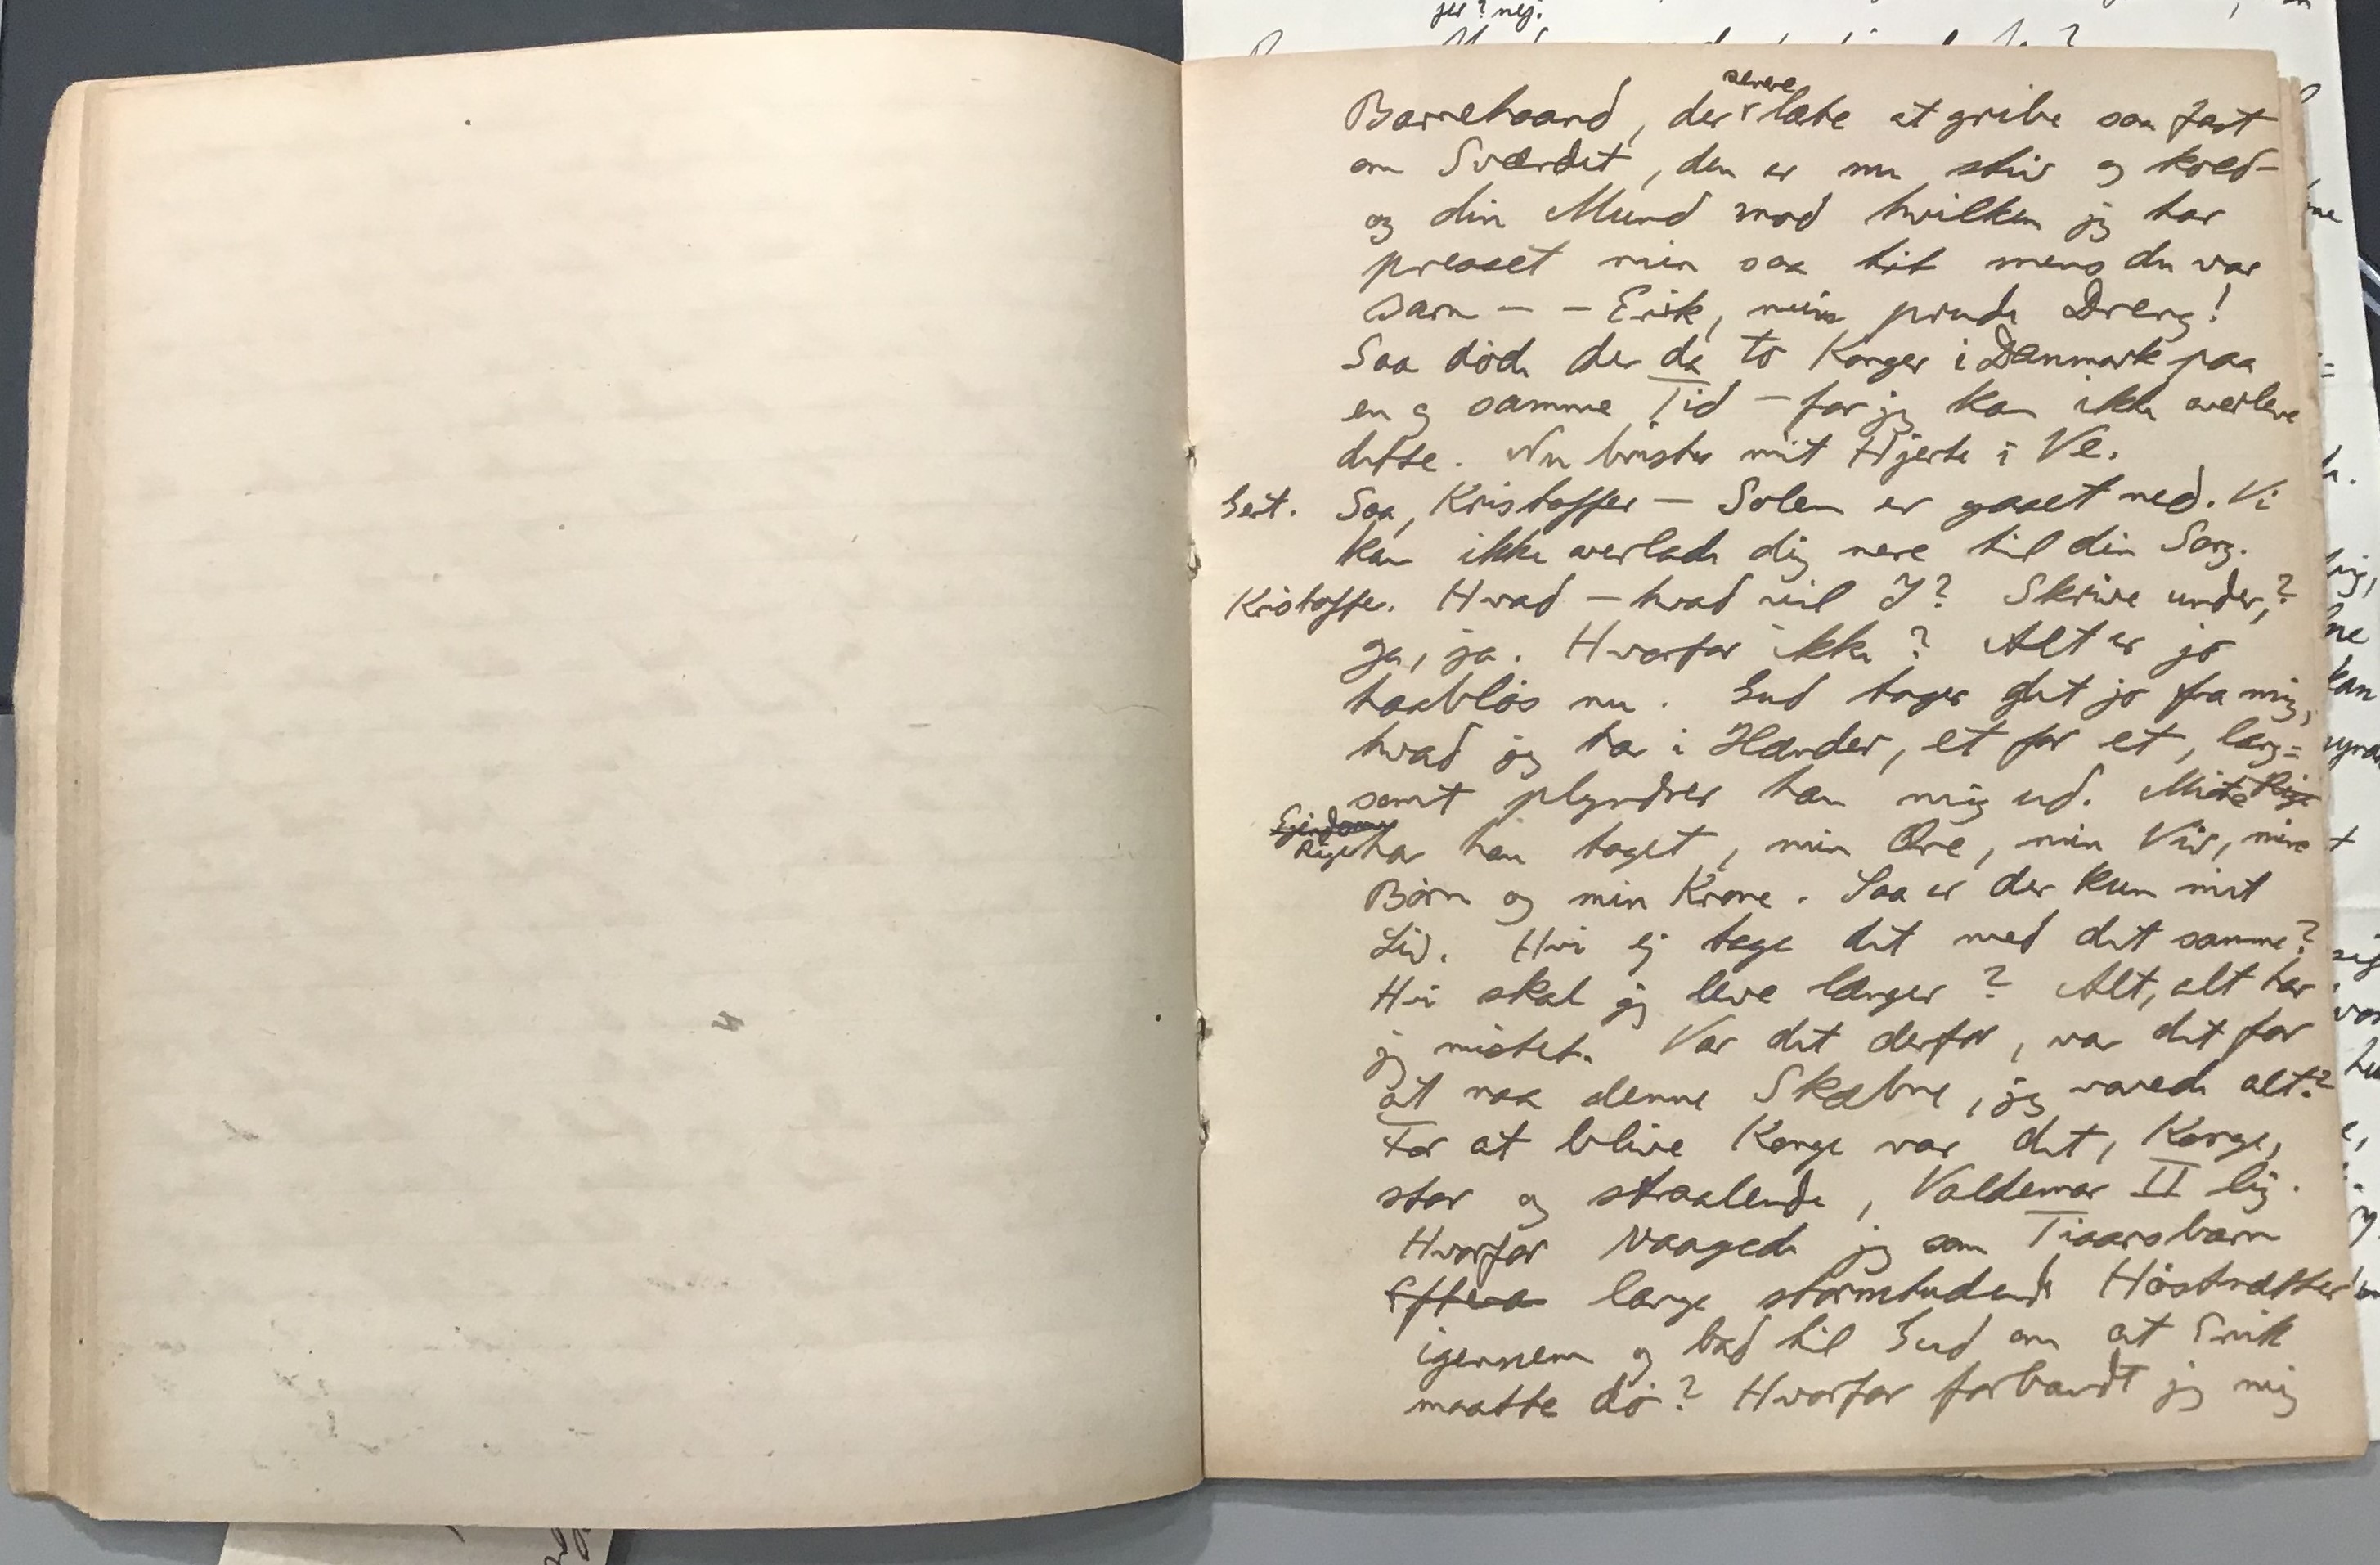 senere
Barnehaand, der lærte at gribe saa fast
om Sværdet, den er nu stiv og kold –
og din Mund mod hvilken jeg har
presset min saa tit mens du var
Barn – – Erik, min prude Dreng!
Saa døde der da to Konger i Danmark paa
en og samme Tid – for jeg kan ikke overleve
dette. Nu brister mit Hjerte i Ve.
Gert. Saa, Kristoffer – Solen er gaaet ned. Vi
kan ikke overlade dig mere til din Sorg.
Kristoffer. Hvad – hvad vil I? Skrive under,?
ja, ja. Hvorfor ikke? Alt er jo
haabløs nu. Gud tager det jo fra mig,
hvad jeg har i Hænder, et for et, lang=
somt plyndrer han mig ud. Mit Rige
Ejendomme
Rige har han taget, min Ære, min Viv, mine
Børn og min Krone. Saa er der kun mit
Liv. Hvi ej tage det med det samme?
Hvi skal jeg leve længer? Alt, alt har
jeg mistet. Var det derfor, var det for
at naa denne Skæbne, jeg vovede alt?
For at blive Konge var det, Konge,
stor og straalende, Valdemar II lig.
Hvorfor vaagede jeg som Tiaarsbarn
lange stormtudende Høstnætter
igennem og bad til Gud om at Erik
maatte dø? Hvorfor forbandt jeg mig